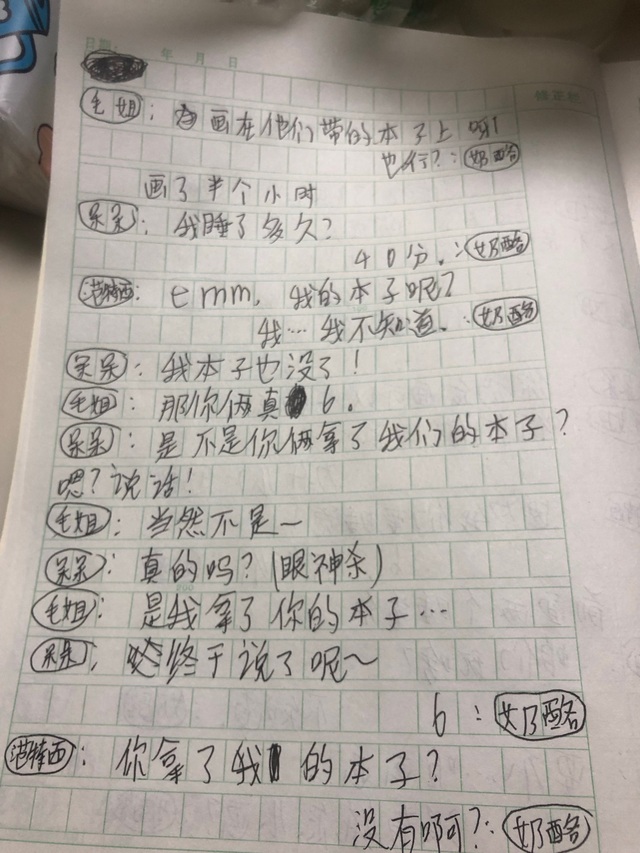 日期： 年 月 日
毛姐：画在他们带的本子上呀！
也行？：奶酪
画了半个小时
呆呆：我睡了多久？
40分。：奶酪
范特西：emm，我的本子呢？
我…我不知道。：奶酪
呆呆：我本子也没了！
毛姐：那你俩真6。
呆呆：是不是你俩拿了我们的本子？
嗯？说话！
毛姐：当然不是~
呆呆：真的吗？(眼神杀)
毛姐：是我拿了你的本子…
呆呆：终于说了呢~
6：奶酪
范特西：你拿了我的本子？
没有啊？：奶酪